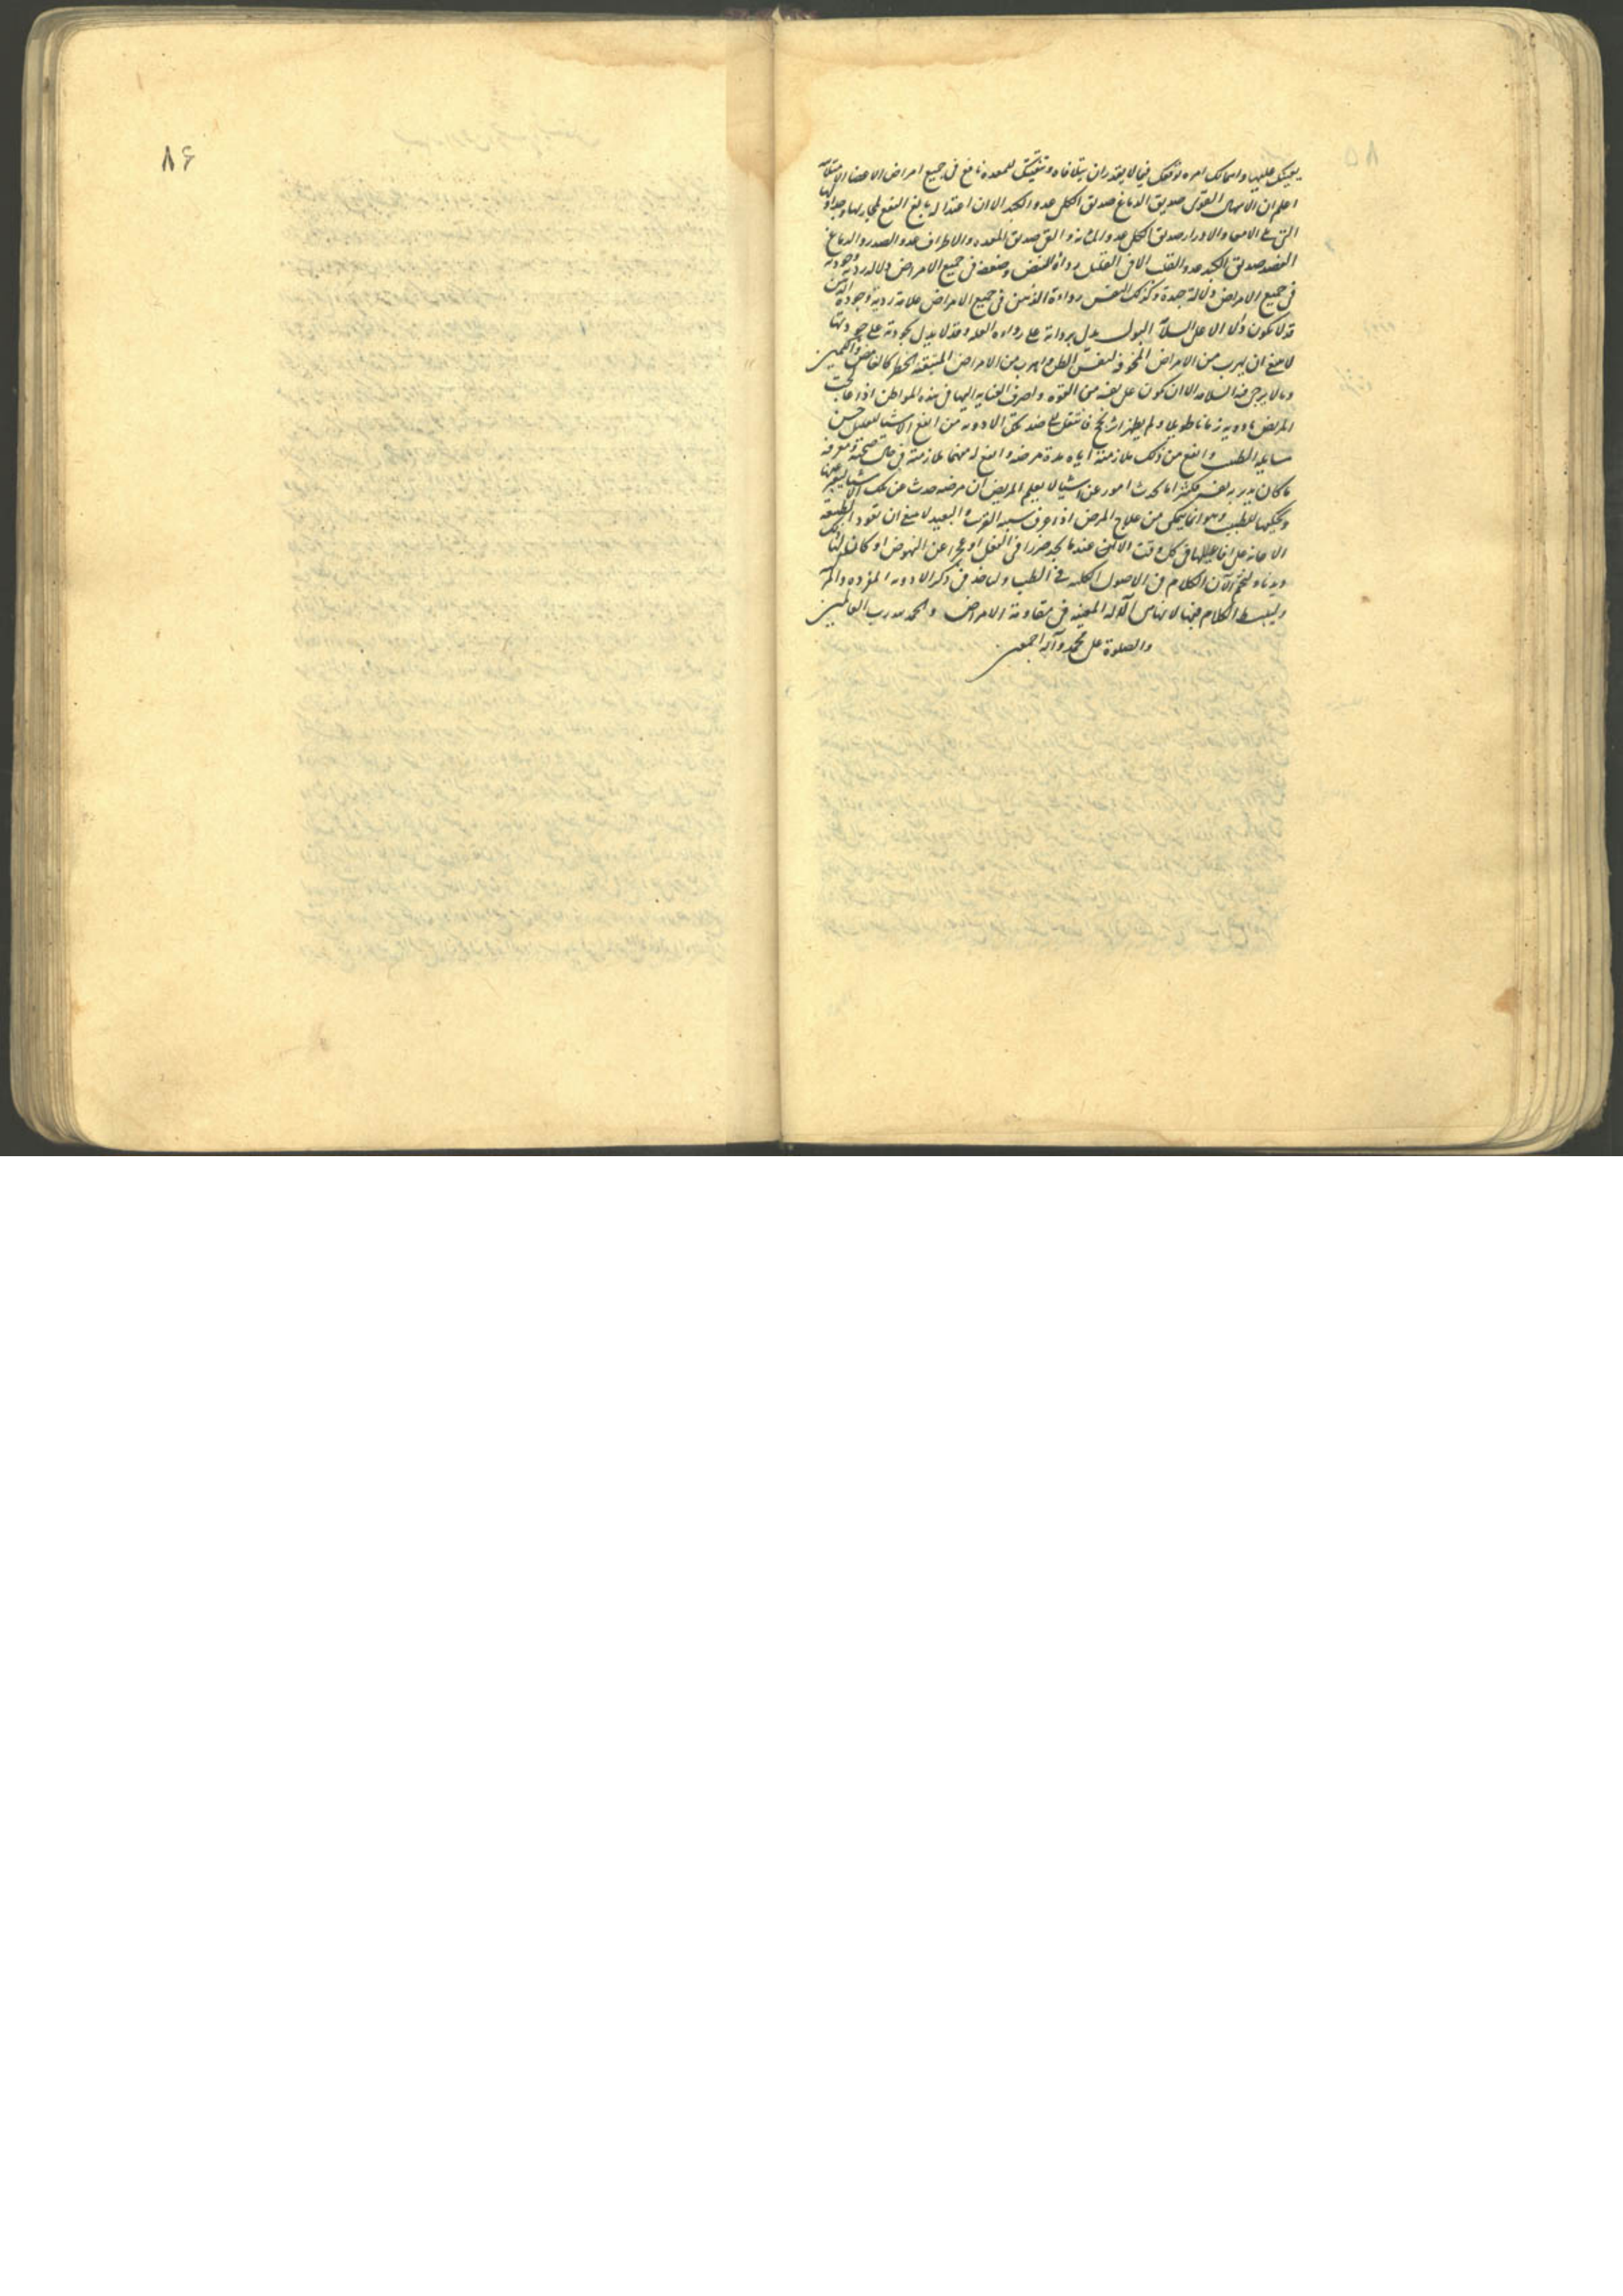 يعينك عليها واما لك امره توقعك فيما لا يقدر ان يتلافاه وتنقيتك للمعدة نافع في جميع امراض الاعضاء
اعلم ان الاسهال القوى صديق الدماغ صديق الكلى عدو الكبد الا ان اعتداله بالغ النفع لمجاريها وجداولها
التي الى الامعاء والادرار صديق الكلى عدو المثانة والقى صديق المعده والاطراف عدو الصدر والدماغ
الفصد صديق الكبد عدو القلب الا في القليل رداءة النبض وضعفه في جميع الامراض دلالة ردية وجودته
في جميع الامراض دلالة جيدة وكذلك النفس رداءة الذهن في جميع الامراض علامة ردية وجودة الذهن
قد لا يكون دالا على السلامة البول يدل برداته على رداءه العله وقد لا يدل بجودته على جودتها
لا ينبغى ان يهرب من الامراض المخوفة لنفس الطن واهرب من الامراض الخطر
وما لا يرجى فيه السلامه الا ان تكون على ثقة من القوه واصرف العنايه اليها في هذه المواطن اذا عالجت
المريض بادويه زمانا طويلا ولم يظهر اثر نجح فانتقل الى ضد تلك الادويه من انفع الاشيا للعليل حسن
مسايله الطبيب وانفع من ذلك ملازمته اياه مدة مرضه وانفع له منهما ملازمته في حال صحته ومعرفه
ما كان يدبر به نفسه فكثيرا ما يحدث امور عن اشيا لا يعلم المريض ان مرضه حدث عن تلك الاشيا
ويحكيها للطبيب وهو انما يتمكن من علاج المرض اذا عرف سببه القريب والبعيد لا ينبغى ان تعود الطبيعه
الاعانه على افاعيلها في كل وقت الا عندما يجد ضررا في الفعل او عجزا عن النهوض او كان ذلك لها
ديدنا ولنختم الان الكلام في الاصول الكليه في الطب ولناخذ في ذكر الادويه المفرده والمركبه
ولنبسط الكلام فيها لانها من الاله المعينه في مقاومة الامراض والحمد لله رب العالمين
والصلوة على محمد وآله اجمعين
٨۶